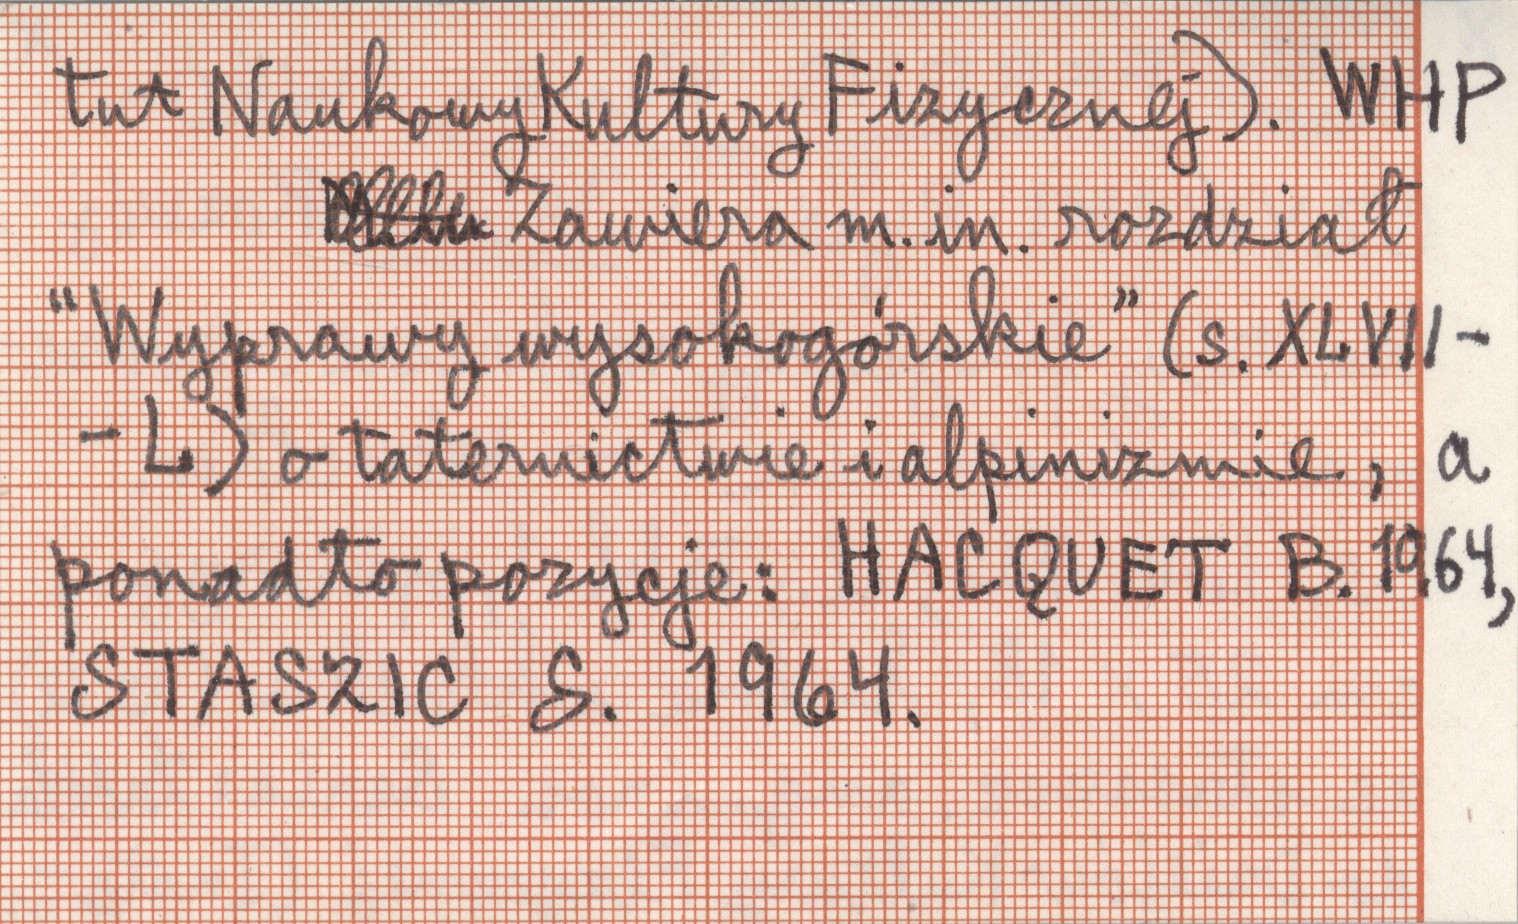 tut Naukowy Kultury Fizycznej). WHP
Zawiera m.in. rozdział
“Wyprawy wysokogórskie” (s. XLVII-
-L) o taternictwie i alpinizmie, a
ponadto pozycje: HACQUET B. 1964,
STASZIC S. 1964.